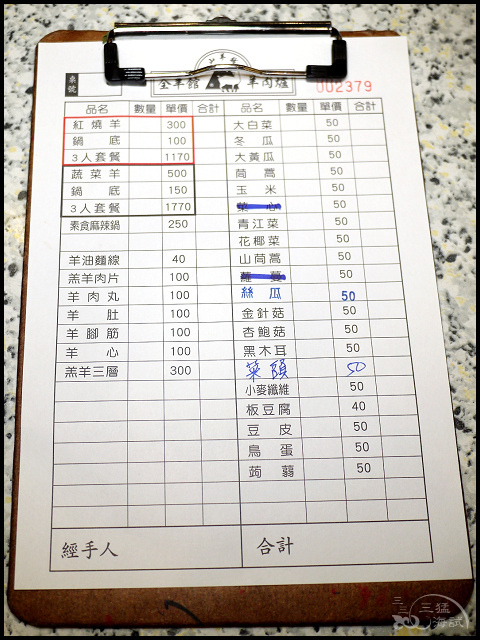 桌號
全羊館 羊肉爐
002379
品名 數量 單價 合計 品名 數量 單價 合計
紅燒羊 300 大白菜 50
鍋底 100 冬瓜 50
3人套餐 1170 大黃瓜 50
蔬菜羊 500 茼蒿 50
鍋底 150 玉米 50
3人套餐 1770 菜心 50
素食麻辣鍋 250 青江菜 50
花椰菜 50
羊油麵線 40 山茼蒿 50
羔羊肉片 100 蘿蔓 50
羊肉丸 100 絲瓜 50
羊肚 100 金針菇 50
羊腳筋 100 杏鮑菇 50
羊心 100 黑木耳 50
羔羊三層 300 菜頭 50
小麥纖維 50
板豆腐 40
豆皮 50
鳥蛋 50
蒟蒻 50
經手人 合計
三猛
海試